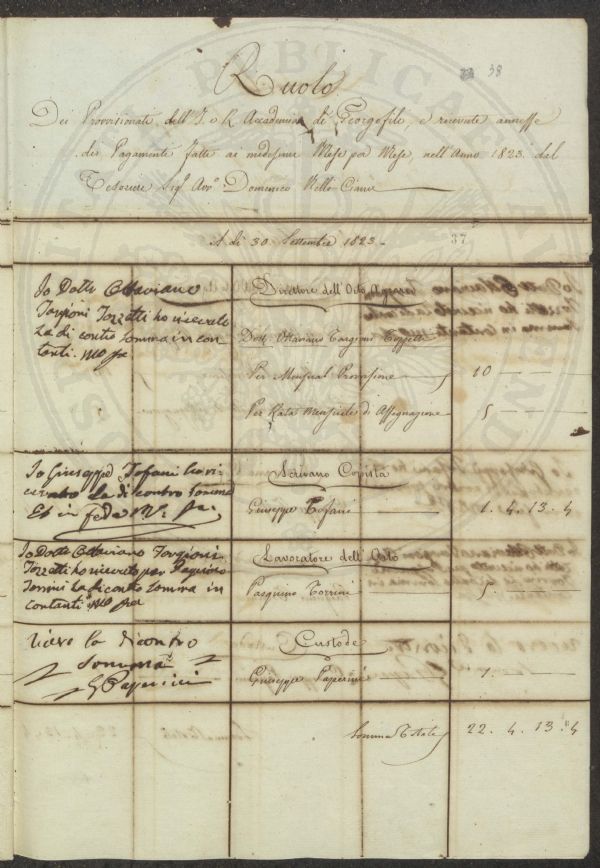 38
Ruolo
Dei Provvisionati dell' I. e R. Accademia di Georgofili, e ricevute annesse
dei Pagamenti fatti ai medesimi Mese per Mese, nell'Anno 1823. dal
Tesoriere Sig. Avv.º Domenico Nello Ciani
A dì 30 Settembre 1823.
37
Io Dotte Ottaviano
Targioni Tozzetti ho ricevuto
la di contro somma in con
tanti. Mo pa
Direttore dell'Orto Agrario
Dott. Ottaviano Targioni Tozzetti
Per Mensual Provvisione 10
Per Rata Mensuale di Assegnazione 5
Io Giuseppe Tofani ho ri
cevuto la di contro somma
Et in fede M.º pa.
Scrivano Copista
Giuseppe Tofani 1. 4. 13. 4
Io Dotte Ottaviano Targioni
Tozzetti ho ricevuto per Pasquino
Torrini la di contro somma in
contanti Mo pa
Lavoratore dell'Orto
Pasquino Torrini 5
Ricevo la di contro
somma
G Paperini
Custode
Giuseppe Paperini 1
Somma Totale 22. 4. 13. 4